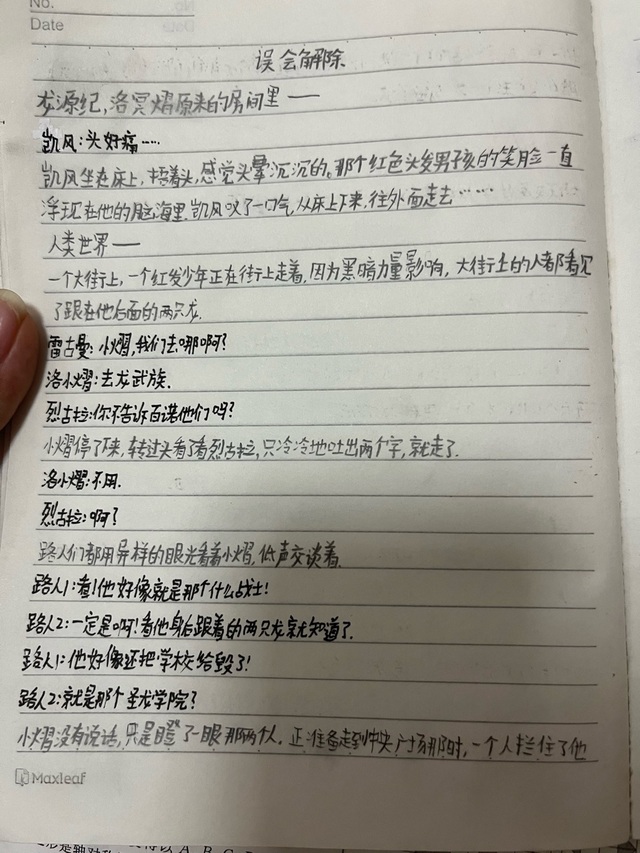 No.
Date
误会解除
龙源纪，洛冥熠原来的房间里——
凯风：头好痛……
凯风坐在床上，捂着头，感觉头晕沉沉的。那个红色头发男孩的笑脸一直
浮现在他的脑海里。凯风叹了一口气，从床上下来，往外面走去……
人类世界——
一个大街上，一个红发少年正在街上走着，因为黑暗力量影响，大街上的人都看见
了跟在他后面的两只龙。
雷古曼：小熠，我们去哪啊？
洛小熠：去龙武族。
烈古拉：你不告诉百诺他们吗？
小熠停了下来，转过头看了看烈古拉，只冷冷地吐出两个字，就走了。
洛小熠：不用。
烈古拉：啊？
路人们都用异样的眼光看着小熠，低声交谈着。
路人1：看！他好像就是那个什么战士！
路人2：一定是啊！看他身后跟着的两只龙就知道了。
路人1：他好像还把学校给毁了！
路人2：就是那个圣龙学院？
小熠没有说话，只是瞪了一眼那两个人。正准备走到中央广场那时，一个人拦住了他
Maxleaf